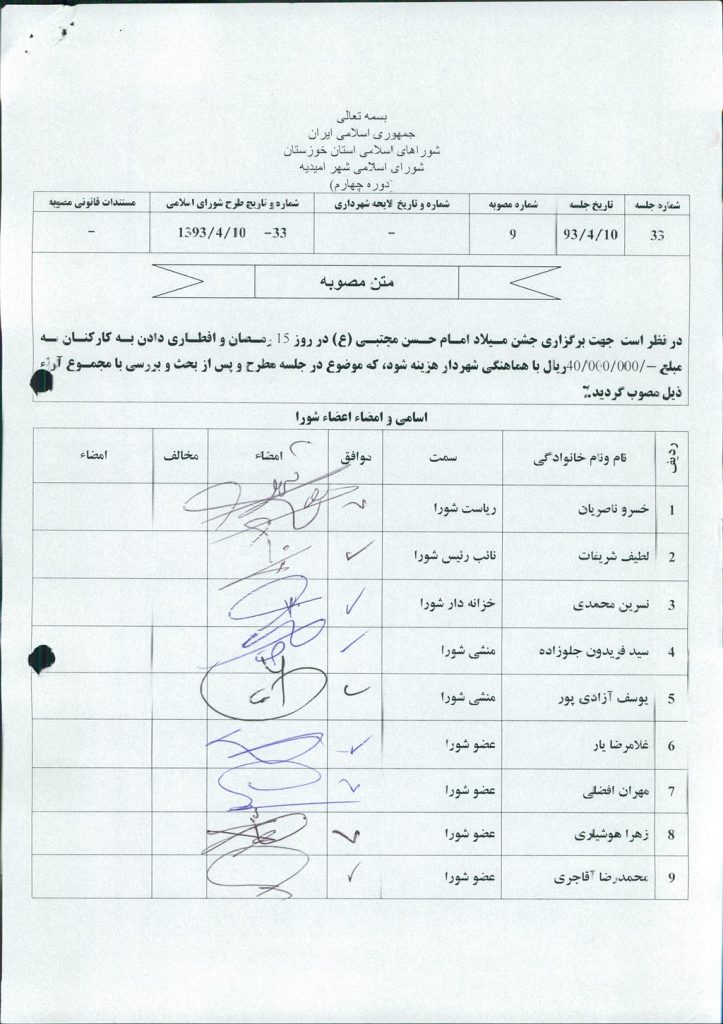 بسمه تعالی
جمهوری اسلامی ایران
شوراهای اسلامی استان خوزستان
شورای اسلامی شهر امیدیه
(دوره چهارم)
شماره جلسه تاریخ جلسه شماره مصوبه شماره و تاریخ لایحه شهرداری شماره و تاریخ طرح شورای اسلامی مستندات قانونی مصوبه
33 93/4/10 9 - 33- 1393/4/10 -
متن مصوبه
در نظر است جهت برگزاری جشن میلاد امام حسن مجتبی (ع) در روز 15 رمضان و افطاری دادن به کارکنان به
مبلغ -/40/000/000ریال با هماهنگی شهردار هزینه شود، که موضوع در جلسه مطرح و پس از بحث و بررسی با مجموع آراء
ذیل مصوب گردید.٪
اسامی و امضاء اعضاء شورا
ردیف نام ونام خانوادگی سمت موافق امضاء مخالف امضاء
1 خسرو ناصریان ریاست شورا
2 لطیف شریفات نائب رئیس شورا
3 نسرین محمدی خزانه دار شورا
4 سید فریدون جلوزاده منشی شورا
5 یوسف آزادی پور منشی شورا
6 غلامرضا یار عضو شورا
7 مهران افضلی عضو شورا
8 زهرا هوشیاری عضو شورا
9 محمدرضا آقاجری عضو شورا